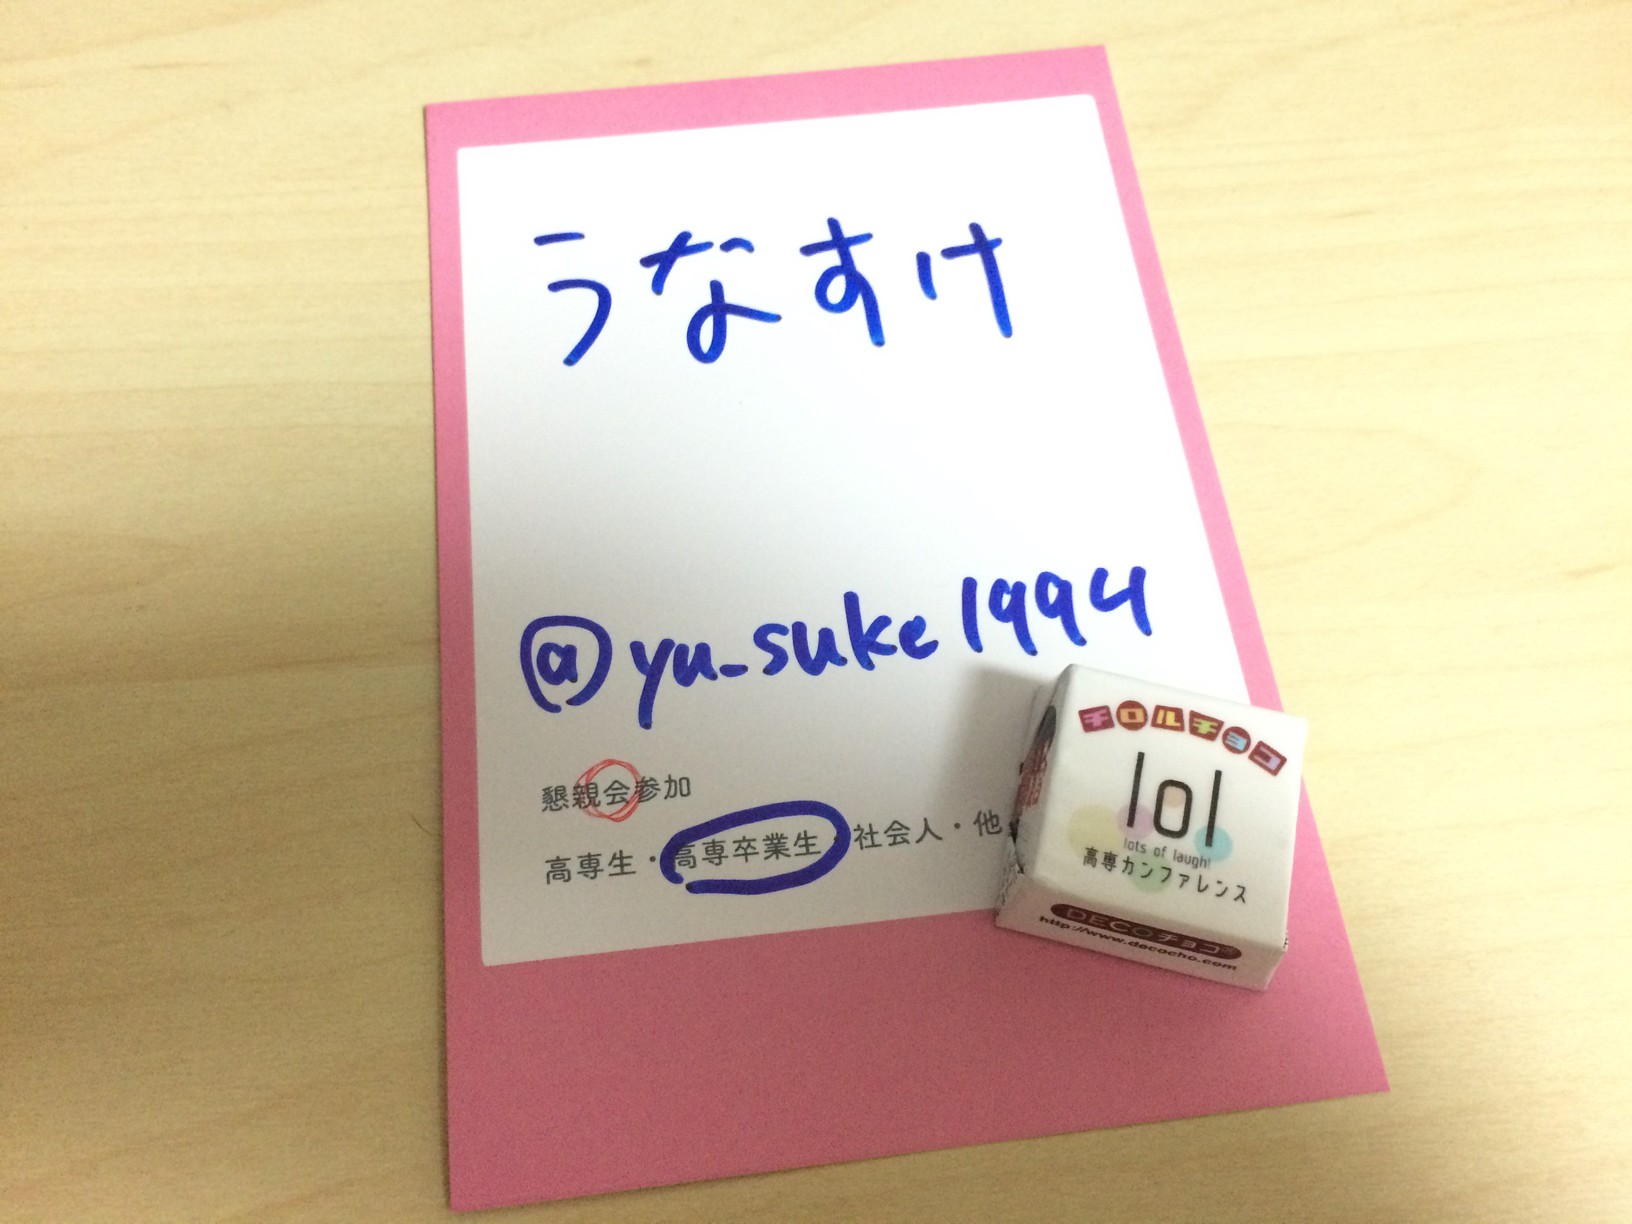 うなすけ
@yu_suke1994
懇親会参加
高専生・高専卒業生・社会人・他
チロルチョコ
lol
lots of laugh!
高専カンファレンス
DECOチョコ
http://www.decocho.com